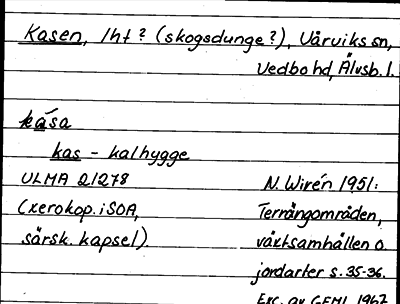 Kasen, lht? (skogsdunge?), Vårviks sn,
Vedbo hd, Älvsb. l.
kása
kas - kalhygge
ULMA 21278
(xerokop. i SOA,
särsk. kapsel)
N. Wirén 1951:
Terrängområden,
växtsamhällen o.
jordarter s. 35-36.
Exc. av GEHL 1967